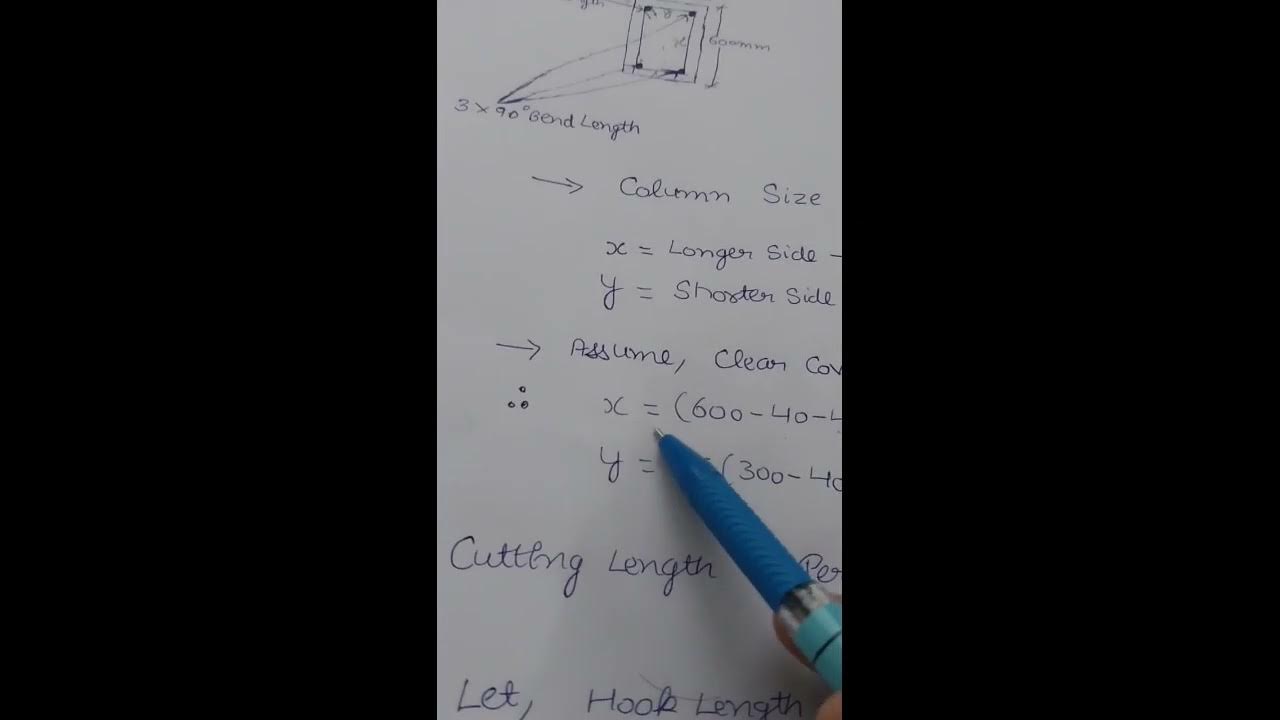 600mm
3 × 90° Bend Length
→ Column Size
x = Longer Side -
y = Shorter Side
→ Assume, Clear Cov
∴ x = (600-40-4
y = (300-40
Cutting Length Per
Let, Hook Length